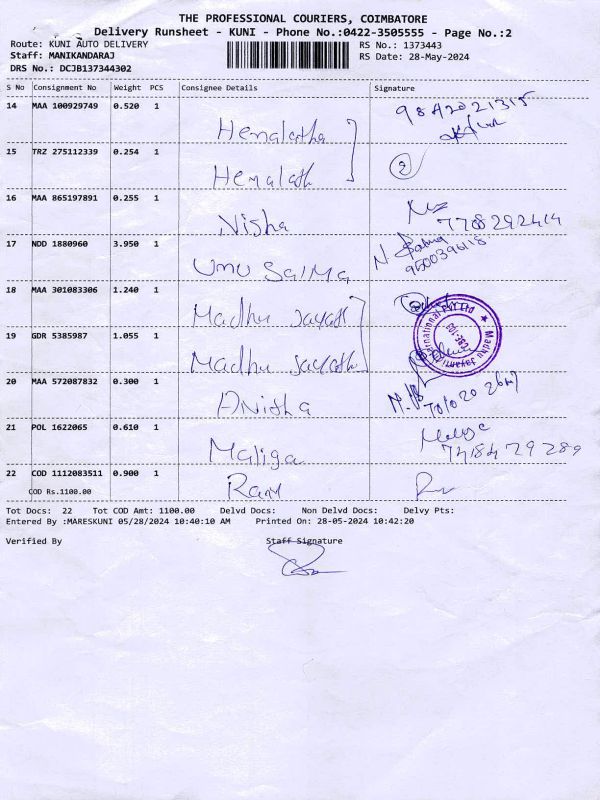 THE PROFESSIONAL COURIERS, COIMBATORE
Delivery Runsheet - KUNI - Phone No.:0422-3505555 - Page No.:2
Route: KUNI AUTO DELIVERY RS No.: 1373443
Staff: MANIKANDARAJ RS Date: 28-May-2024
DRS No.: DCJB137344302
S No Consignment No Weight PCS Consignee Details Signature
14 MAA 100929749 0.520 1 Hemalatha 9842021315
15 TRZ 275112339 0.254 1 Hemalath 2
16 MAA 865197891 0.255 1 Nisha 7708292414
17 NDD 1880960 3.950 1 Umu Salma 9600396118
18 MAA 301083306 1.240 1 Madhu Jayath
19 GDR 5385987 1.055 1 Madhu Jayath
Madhu Jayanti International Pvt Ltd
CBE-103
20 MAA 572087832 0.300 1 Anisha
21 POL 1622065 0.610 1 Maliga 7418479289
22 COD 1112083511 0.900 1 Ram
COD Rs.1100.00
Tot Docs: 22 Tot COD Amt: 1100.00 Delvd Docs: Non Delvd Docs: Delvy Pts:
Entered By :MARESKUNI 05/28/2024 10:40:10 AM Printed On: 28-05-2024 10:42:20
Verified By Staff Signature